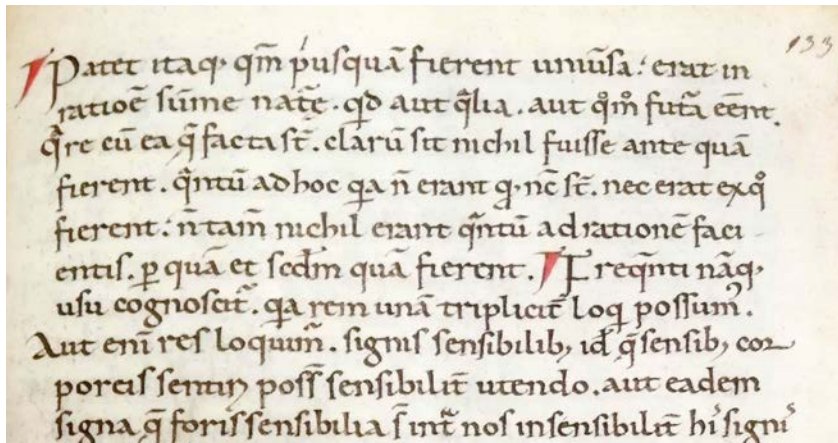 133
Patet itaq; qm̄ p̍usquā fierent uniu̅sa. erat in
ratiōe sūme nat̄e. qd̄ aut q̄lia. aut qͦmͦ fut̄a eēnt.
q̄re cū ea q̄ facta st̄. clarū sit nichil fuisse ante quā
fierent. q̄ntū ad hoc qa n̄ erant q̄ nc̄ st̄. nec erat ex qͦ
fierent. n̄ tam̄ nichil erant q̄ntū ad rationē faci
entis. ꝑ quā et scd̄m quā fierent. Freq̄nti nāq;
usu cognoscit᷑. qa rem unā triplicit̄ loq̄ possumꝰ.
Aut eni᷑ res loquim᷑. signis sensibilib; id ē q̄ sensib; cor
poreis sentiri poss̄ sensibilit̄ utendo. aut eadem
signa q̄ foris sensibilia s̄ int̄ nos insensibilit̄ his signis